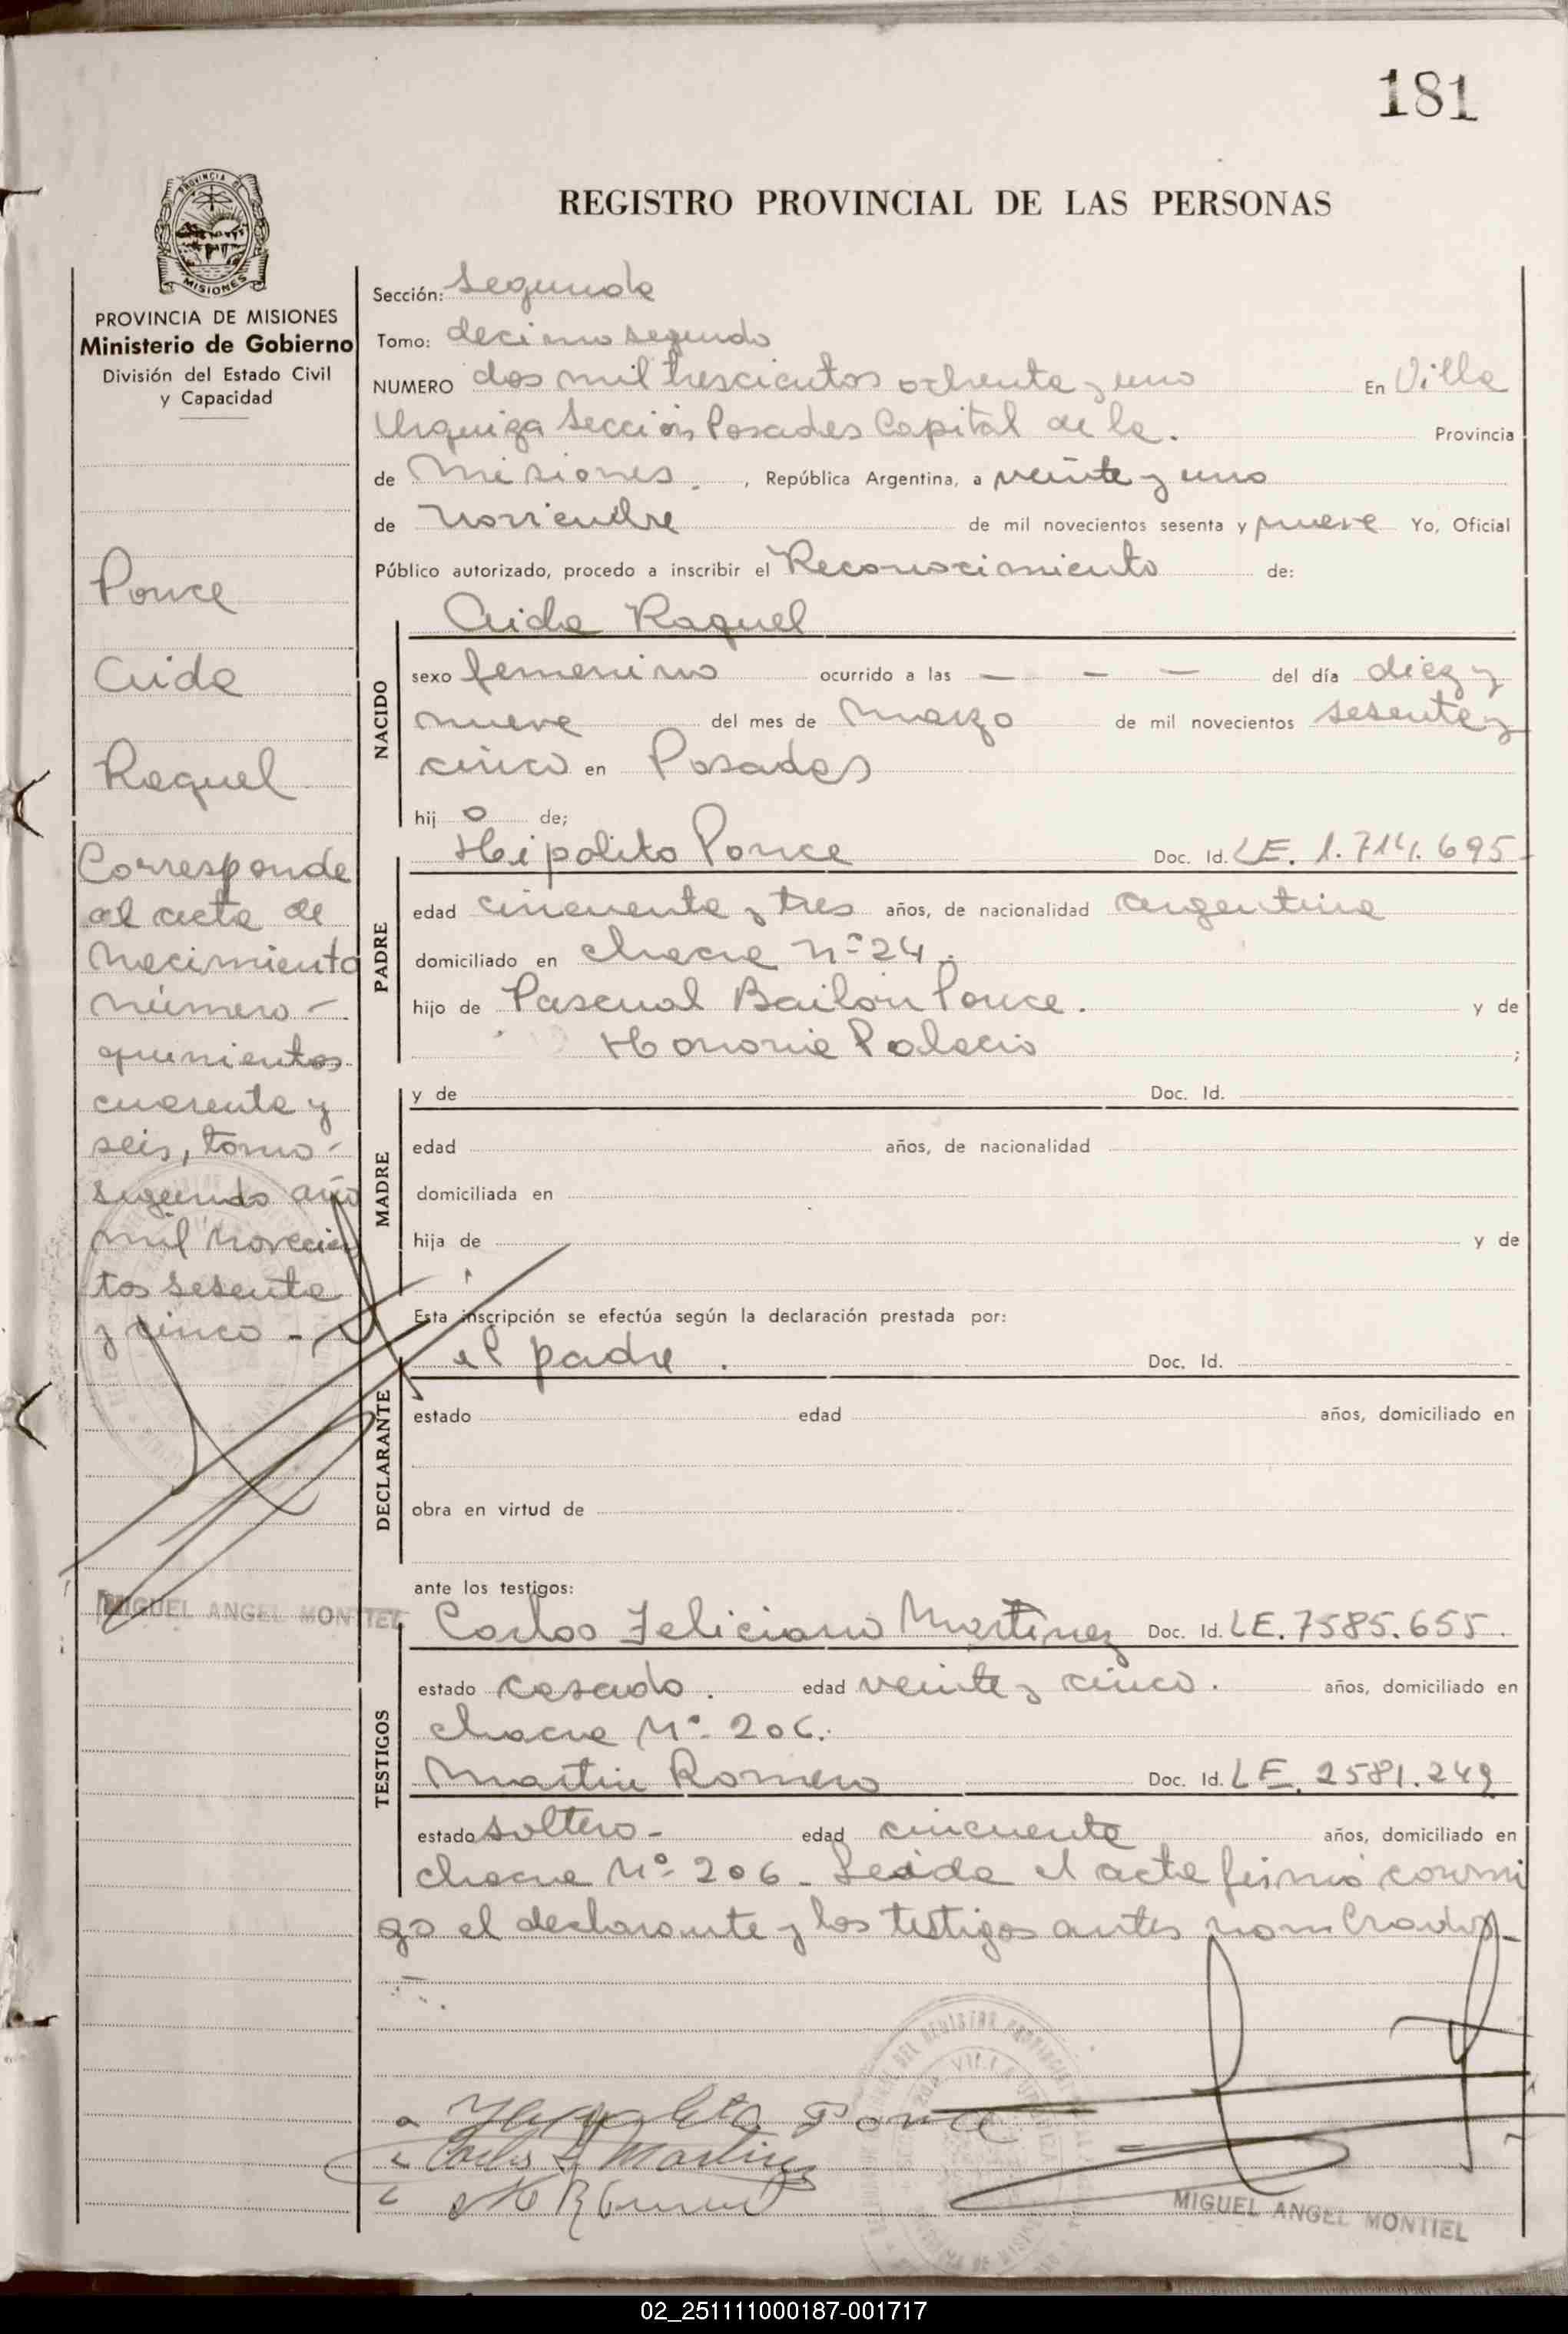 181
REGISTRO PROVINCIAL DE LAS PERSONAS
PROVINCIA DE MISIONES
Ministerio de Gobierno
División del Estado Civil
y Capacidad
Ponce
Aida
Raquel
Corresponde
al acta de
Nacimiento
número -
quinientos
cuarenta y
seis, tomo -
segundo año
mil novecien
tos sesenta
y cinco -
MIGUEL ANGEL MONTIEL
Sección: Segunda
Tomo: decimo segundo
NUMERO dos mil trescientos ochenta y uno En Villa
Urquiza Sección Posadas Capital de la. Provincia
de Misiones. , República Argentina, a veinte y uno
de Noviembre de mil novecientos sesenta y nueve Yo, Oficial
Público autorizado, procedo a inscribir el Reconocimiento de:
Aida Raquel
NACIDO
sexo femenino ocurrido a las — — — del día diez y
nueve del mes de Marzo de mil novecientos sesenta y
cinco en Posadas
hij o de;
PADRE
Hipolito Ponce Doc. Id. LE. 1.714.695
edad cincuenta y tres años, de nacionalidad argentina
domiciliado en chacra Nº 24.
hijo de Pascual Bailón Ponce. y de
Honoria Palacio ;
MADRE
y de Doc. Id.
edad años, de nacionalidad
domiciliada en
hija de y de
Esta inscripción se efectúa según la declaración prestada por:
DECLARANTE
el padre. Doc. Id.
estado edad años, domiciliado en
obra en virtud de
ante los testigos:
TESTIGOS
Carlos Feliciano Martinez Doc. Id. LE. 7585.655.
estado casado. edad veinte y cinco. años, domiciliado en
chacra Nº 206.
Martin Romero Doc. Id. LE. 2581.249
estado soltero - edad cincuenta años, domiciliado en
chacra Nº 206 - Leida el acta firmó conmi
go el declarante y los testigos antes nombrados -
Hipolito Ponce
Carlos F Martinez
M Romero
MIGUEL ANGEL MONTIEL
02_251111000187-001717